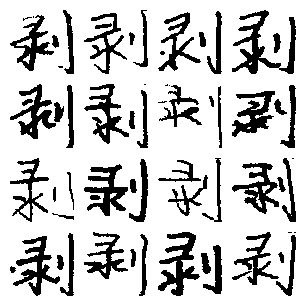 剥剥剥剥
剥剥剥剥
剥剥剥剥
剥剥剥剥